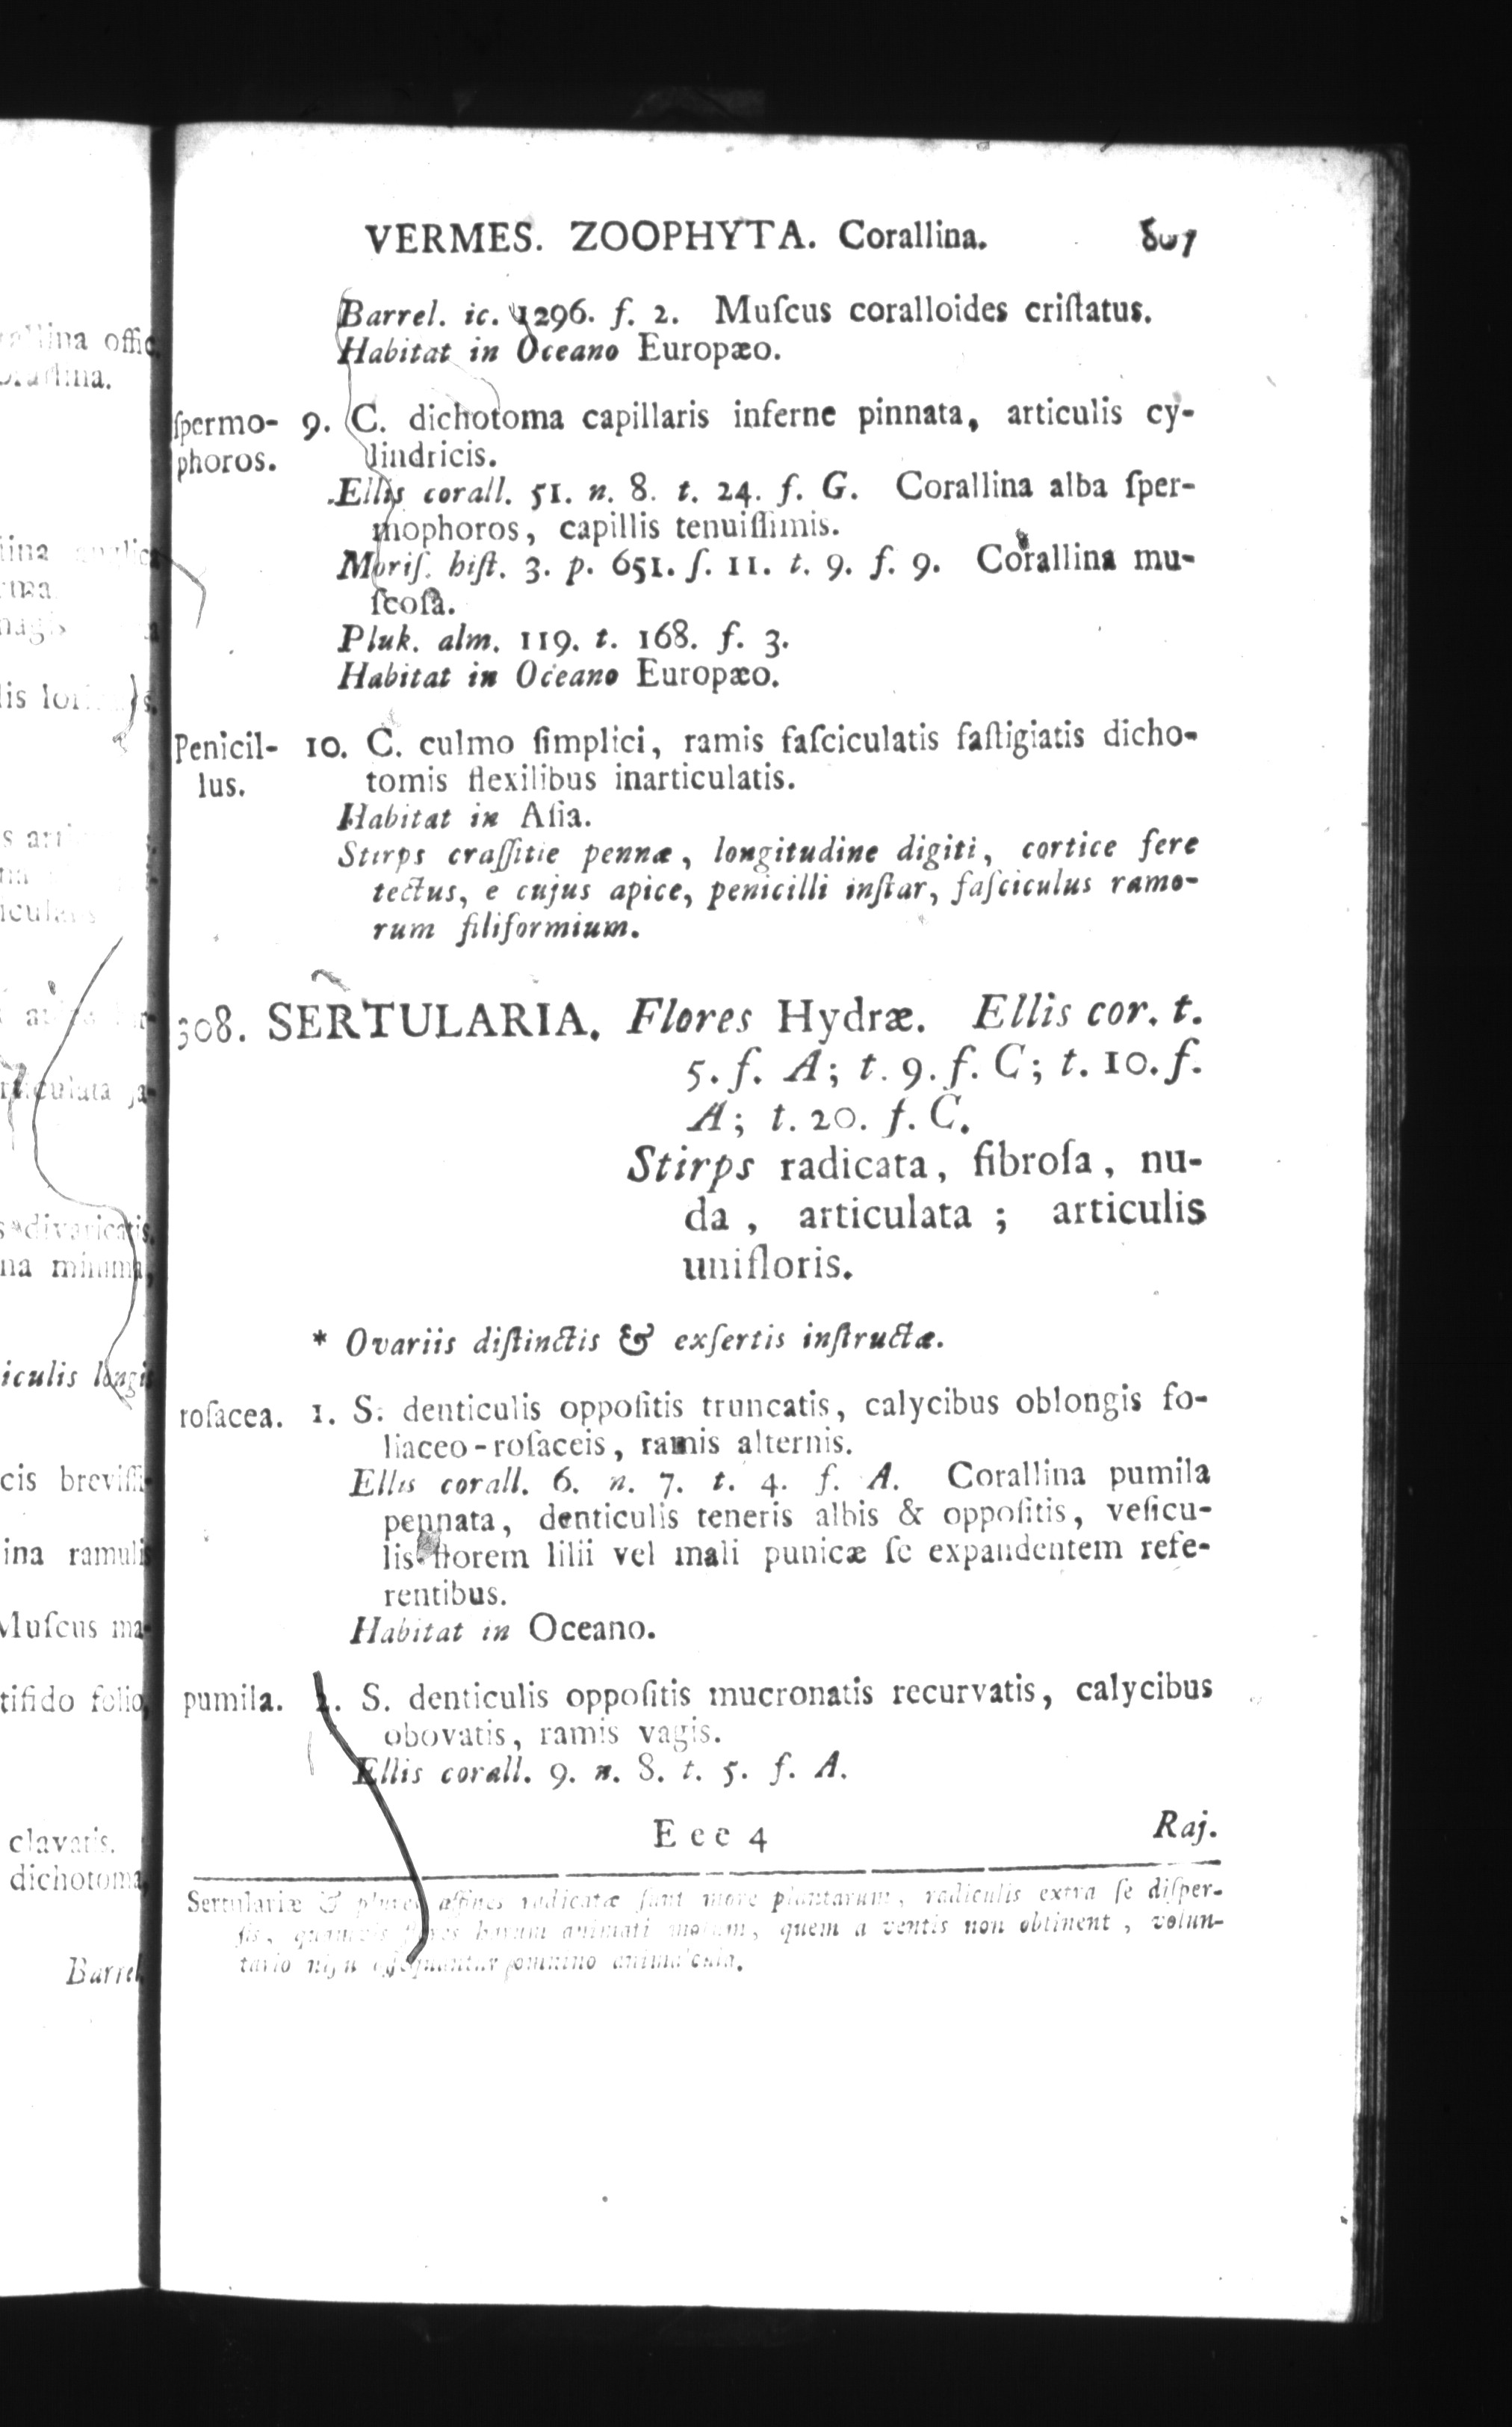 VERMES. ZOOPHYTA. Corallina. 807
Barrel. ic. 1296. f. 2. Muſcus coralloides criſtatus.
Habitat in Oceano Europæo.
ſpermo- 9. C. dichotoma capillaris inferne pinnata, articulis cy-
phoros. lindricis.
Ellis corall. 51. n. 8. t. 24. f. G. Corallina alba ſper-
mophoros, capillis tenuiſſimis.
Moriſ. hiſt. 3. p. 651. ſ. 11. t. 9. f. 9. Corallina mu-
ſcoſa.
Pluk. alm. 119. t. 168. f. 3.
Habitat in Oceano Europæo.
Penicil- 10. C. culmo ſimplici, ramis faſciculatis faſtigiatis dicho-
lus. tomis flexilibus inarticulatis.
Habitat in Aſia.
Stirps craſſitie pennæ, longitudine digiti, cortice fere
tectus, e cujus apice, penicilli inſtar, faſciculus ramo-
rum filiformium.
308. SERTULARIA. Flores Hydræ. Ellis cor. t.
5. f. A; t. 9. f. C; t. 10. f.
A; t. 20. f. C.
Stirps radicata, fibroſa, nu-
da, articulata; articulis
unifloris.
* Ovariis diſtinctis & exſertis inſtructæ.
roſacea. 1. S. denticulis oppoſitis truncatis, calycibus oblongis fo-
liaceo-roſaceis, ramis alternis.
Ellis corall. 6. n. 7. t. 4. f. A. Corallina pumila
pennata, denticulis teneris albis & oppoſitis, veſicu-
lis florem lilii vel mali punicæ ſe expandentem refe-
rentibus.
Habitat in Oceano.
pumila. 2. S. denticulis oppoſitis mucronatis recurvatis, calycibus
obovatis, ramis vagis.
Ellis corall. 9. n. 8. t. 5. f. A.
Eee 4 Raj.
Sertulariæ & affines radicatæ ſunt more plantarum, radiculis extra ſe diſper-
ſis, animati motum, quem a ventis non obtinent, volun-
tario omnino animalcula.